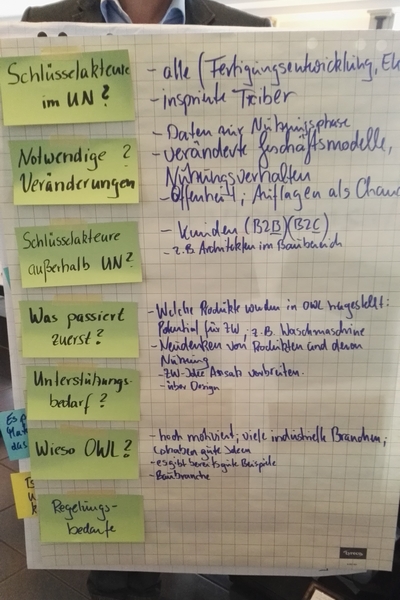 Schlüsselakteure
im UN?
- alle (Fertigungsentwicklung,
- inspirierte Treiber
Notwendige ?
Veränderungen
- Daten zur Nutzungsphase
- veränderte Geschäftsmodelle,
Nutzungsverhalten
- Offenheit, Auflagen als
Schlüsselakteure
außerhalb UN?
- Kunden (B2B)(B2C)
- z.B. Architekten im Baubereich
Was passiert
zuerst?
- Welche Produkte wurden in OWL hergestellt:
Potential für ZW, z.B. Waschmaschine
- Neudenken von Produkten und deren
Nutzung
- ZW-Idee Ansatz verbreiten
- über Design
Unterstützungs-
bedarf?
Wieso OWL?
- hoch motiviert, viele industrielle Branchen,
haben gute Ideen
- es gibt bereits gute Beispiele
- Baubranche
Regelungs-
bedarfe